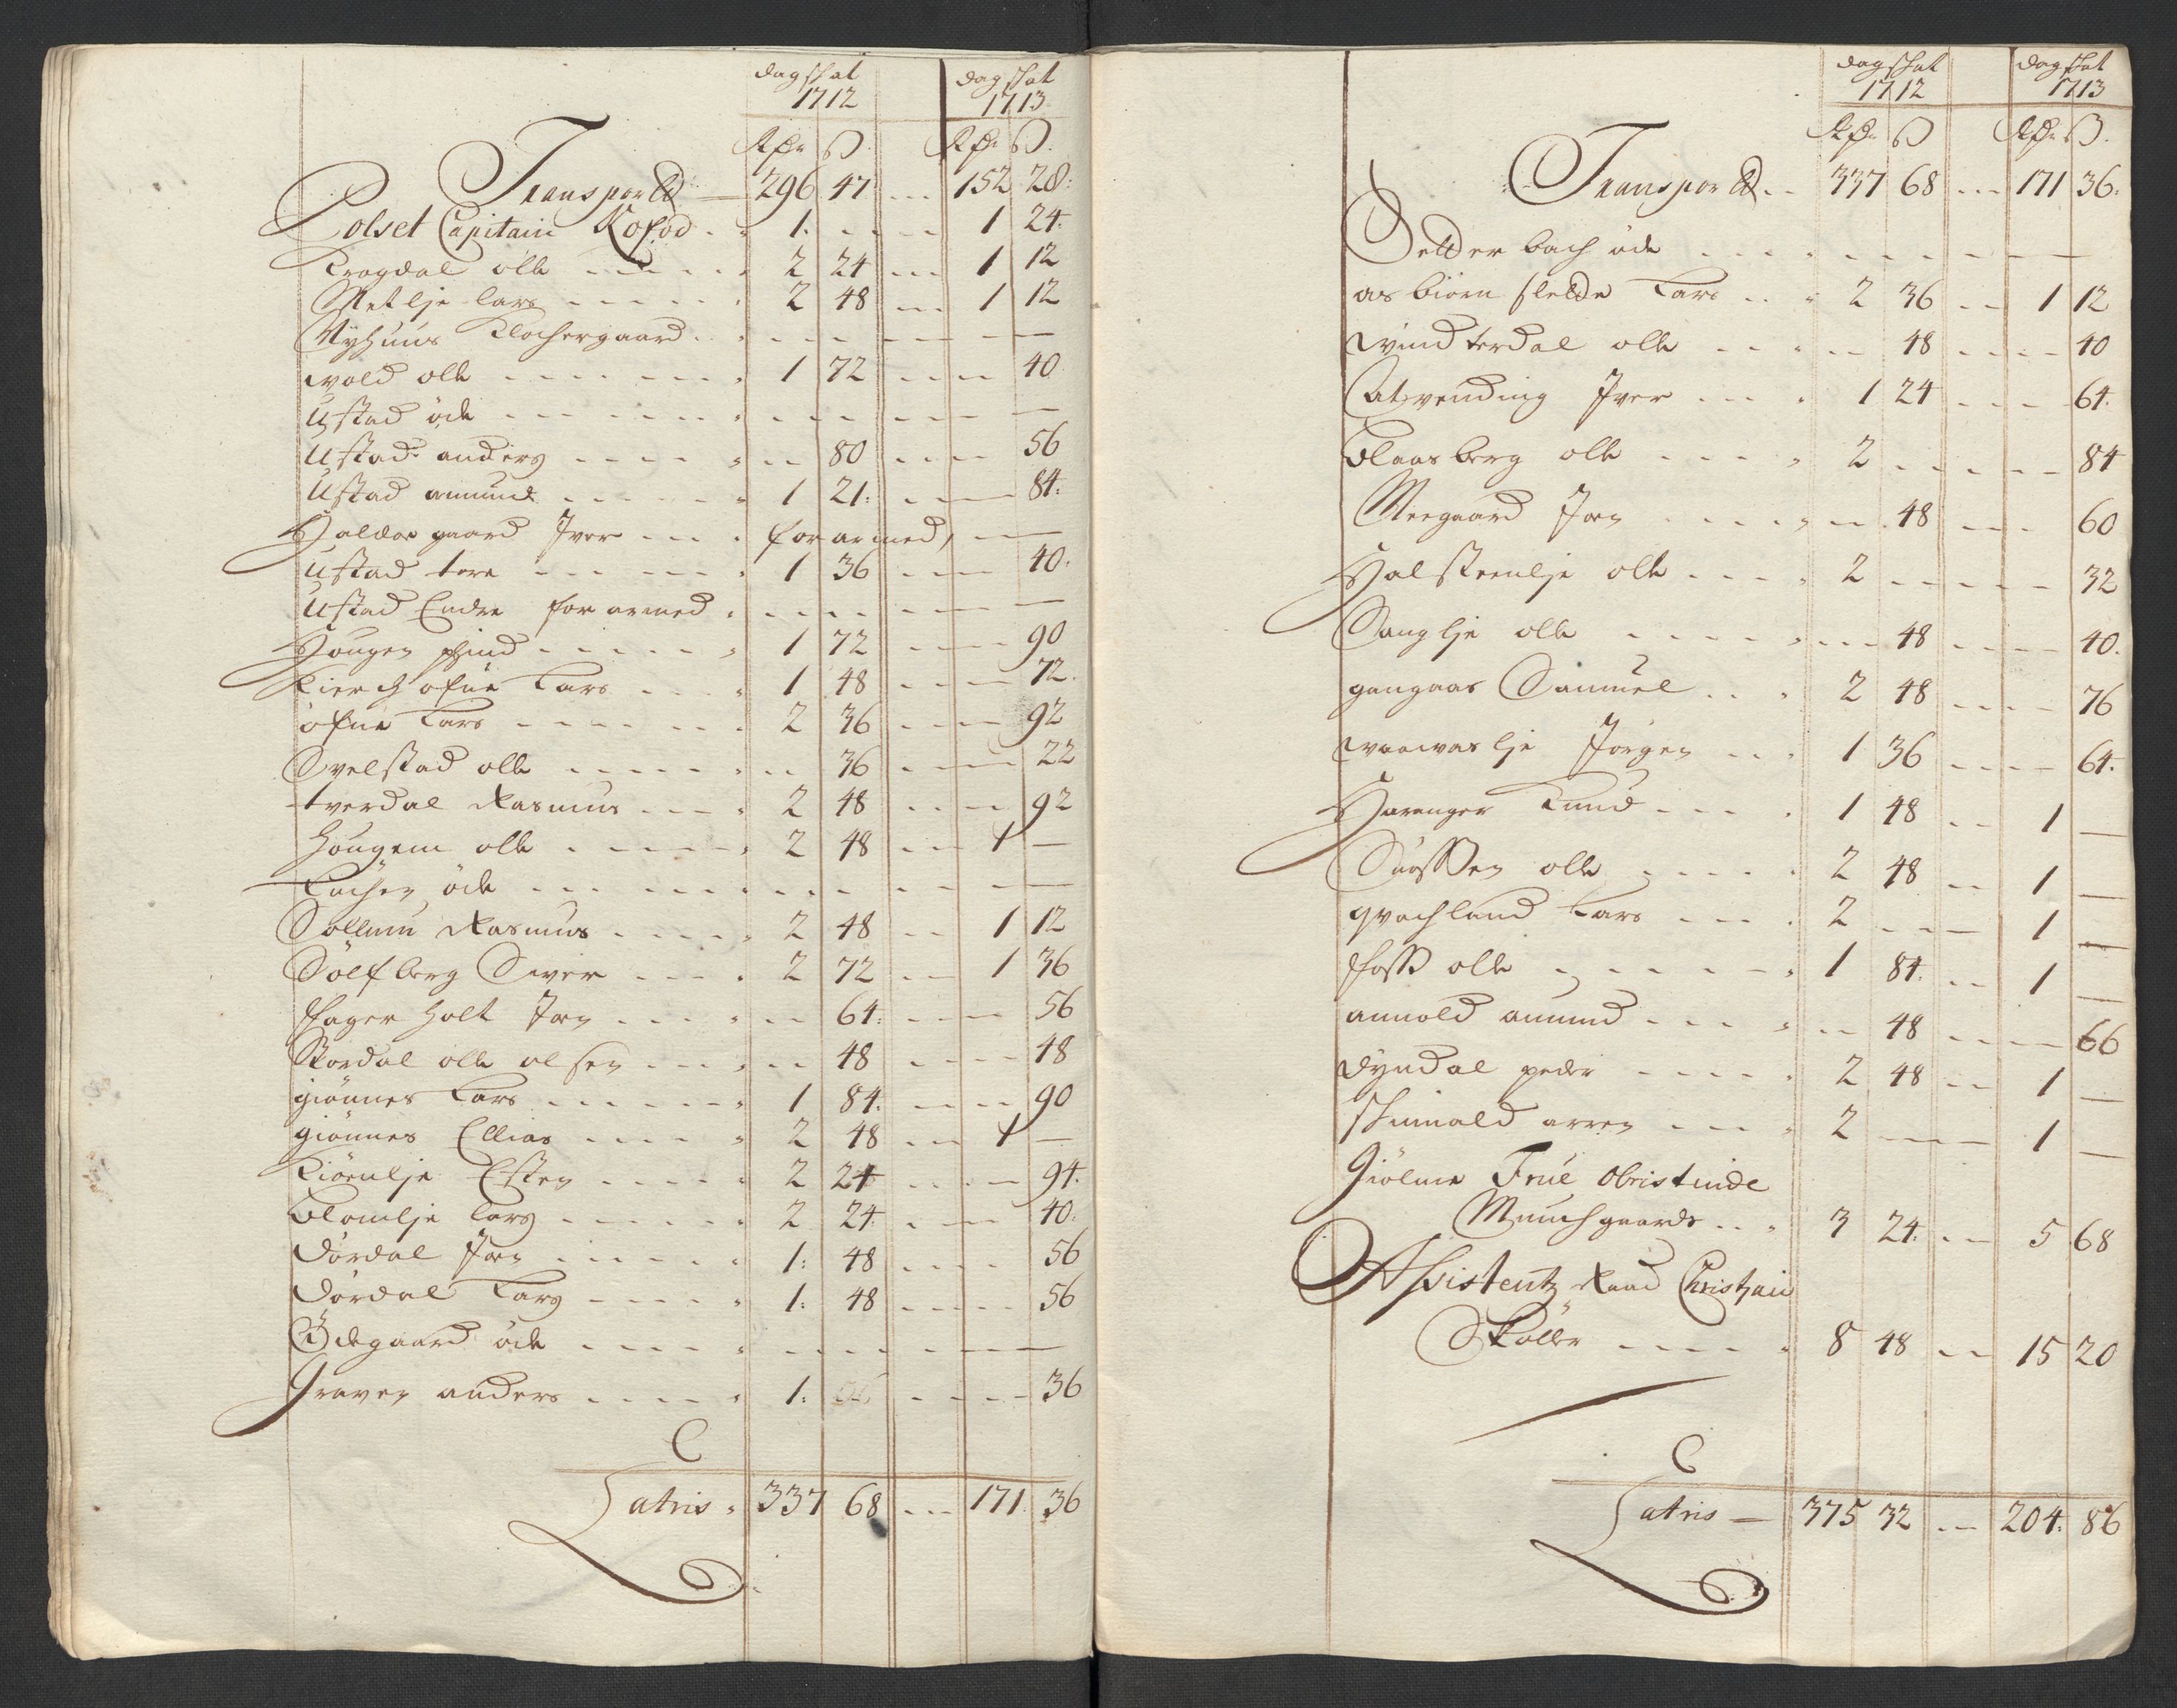 dagskat 1712 dagskat 1713
Rdr ß Rdr ß
Transporte 296 47 152 28
Polset Capitain Kofod 1 1 24
Krogdal olle 2 24 1 12
Metlje lars 2 48 1 12
Nyhuus Klochergaard
wold olle 1 72 40
Ustad öde
Ustad anders 80 56
Ustad amund 1 21 84
Haldor gaard Iver forarmed
Ustad tore 1 36 40
Ustad Endre forarmed
Hougen 1 72 90
Kierchofne Lars 1 48 72
öfne Lars 2 36 92
Svelstad olle 36 22
tverdal Rasmus 2 48 92
Hougem olle 2 48 1
öde
Sollum Rasmus 2 48 1 12
Sölfberg Siver 2 72 1 36
fager Holt Jon 64 56
Skordal olle olsen 48 48
giönnes Lars 1 84 90
giönnes Ellias 2 48 1
Kiörnlje Esten 2 24 94
Blomlje Lars 2 24 40
Dördal Jon 1 48 56
Dördal Lars 1 48 56
Ödegaard öde
Graven anders 1 36
Latris 337 68 171 36
dagskat 1712 dagskat 1713
Rdr ß Rdr ß
Transporte 337 68 171 36
bach öde
asbiörn slette Lars 2 36 1 12
windterdal olle 48 40
Atvending Iver 1 24 64
Blaasberg olle 2 84
Moegaard Jon 48 60
Halsteenlje olle 2 32
Sanglje olle 48 40
gangaas Samuel 2 48 76
waawaslje Jörgen 1 36 64
Haranger Knud 1 48 1
olle 2 48 1
qvachland Lars 2 1
foss olle 1 84 1
annold amund 48 66
dyndal peder 2 48 1
skiinald arren 2 1
Giölme Frue Obristinde
Munchgaards 3 24 5 68
Assistentz Raad Christian
Skøller 8 48 15 20
Latris 375 32 204 86